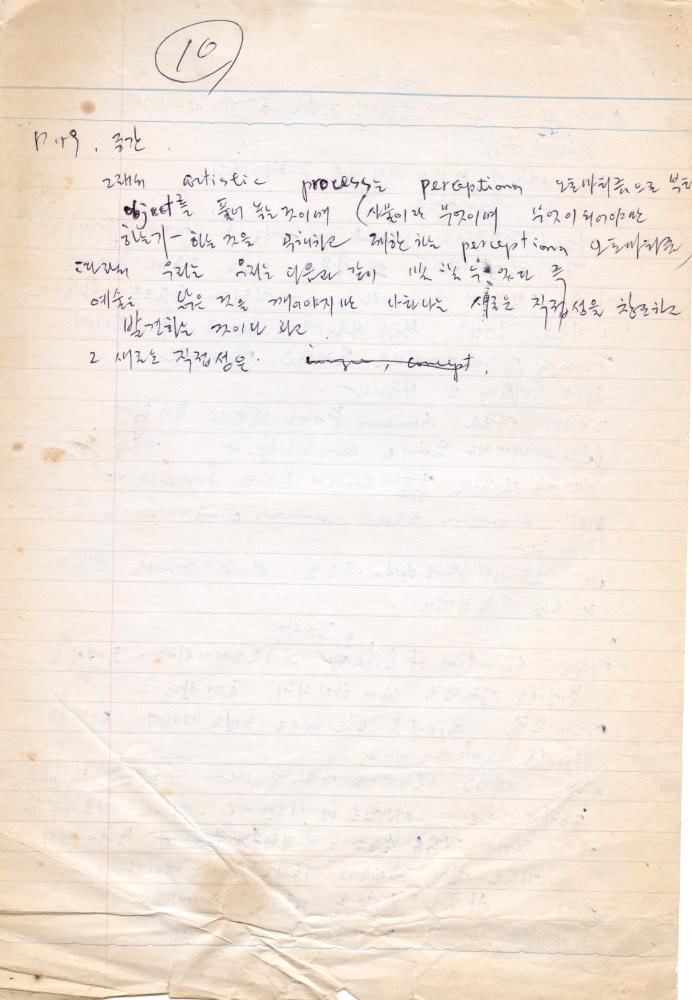 10
P. 49. 중간
그래서 artistic process는 perceptiona 오토마티즘으로 부터
object를 풀어 놓는 것이며 (사물이란 무엇이며 무엇이 되어야만
하는가 - 하는 것을 하고 제한하는 perceptiona 오토마티즘)
따라서 우리는 우리는 다음과 같이 말 할 수 있다 즉
예술은 낡은 것을 깨야지만 나타나는 새로운 직접성을 창조하고
발견하는 것이다 라고.
그 새로운 직접성은. image, concept.